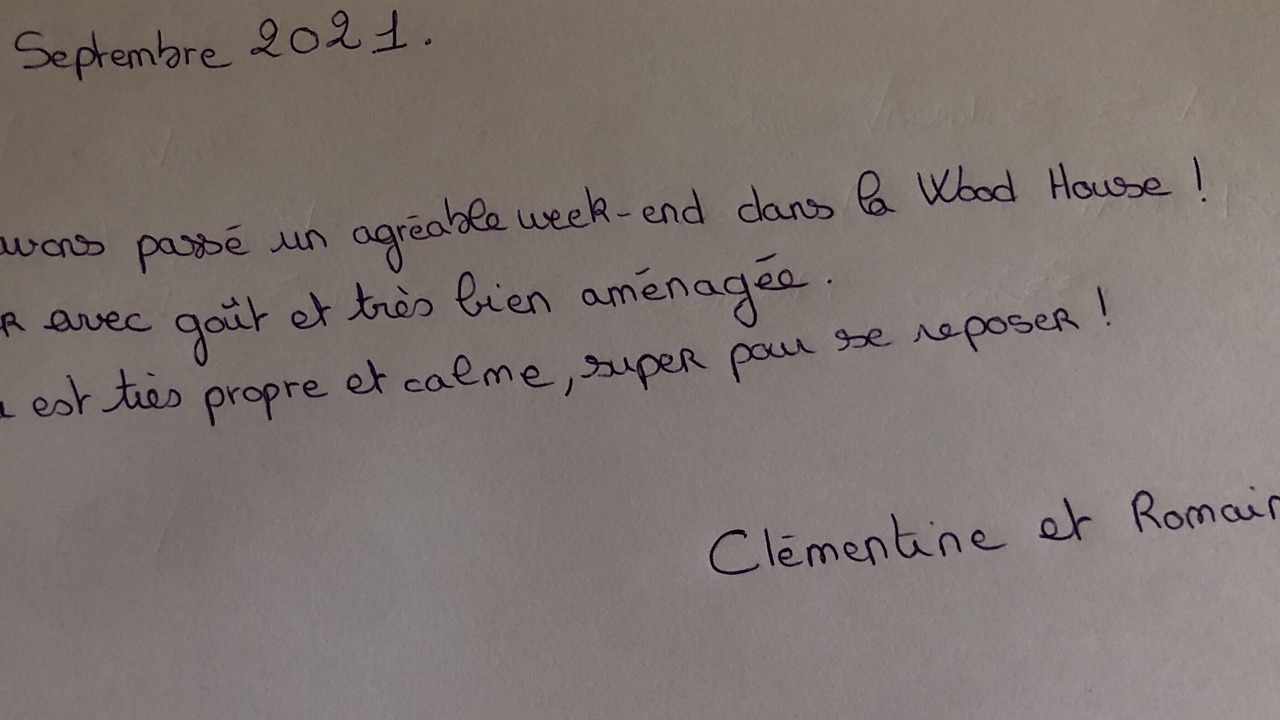 Septembre 2021.
passé un agréable week-end dans la Wood House !
avec goût et très bien aménagée.
est très propre et calme, super pour se reposer !
Clémentine et Romain